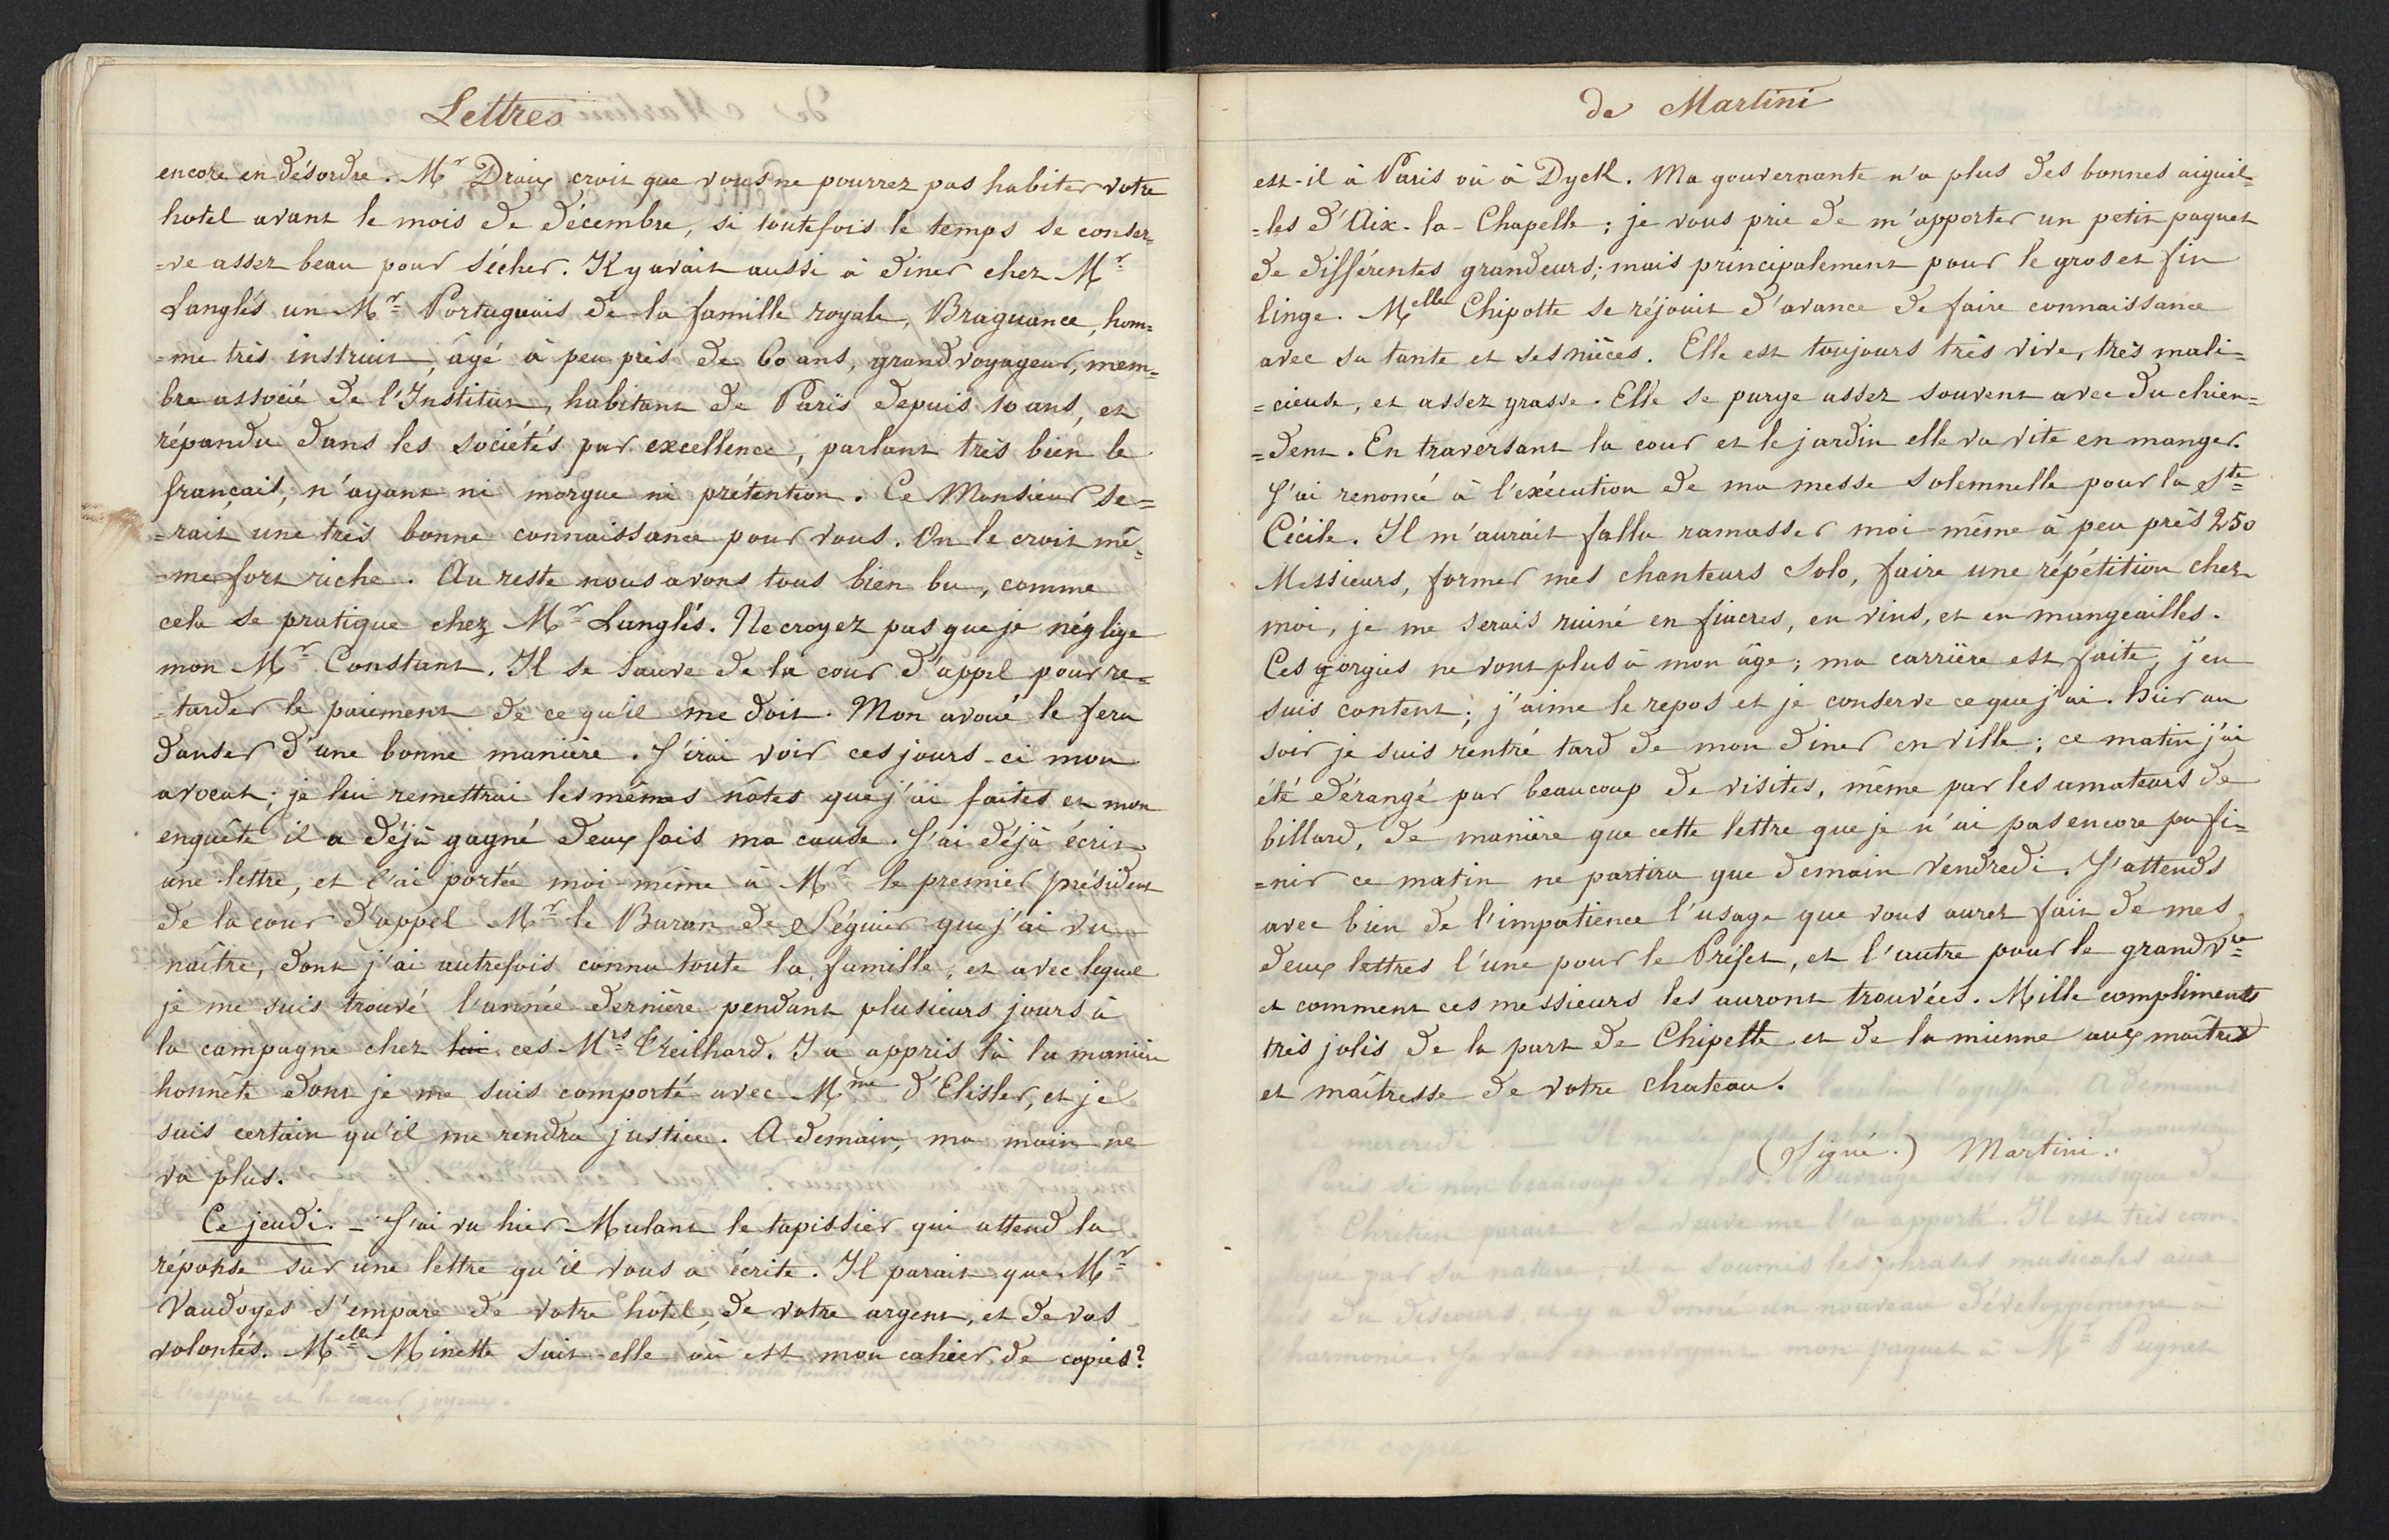 Lettres
encore en désordre. Mr Droux croit que vous ne pourrez pas habiter votre
hotel avant le mois de décembre, si toutefois le temps se conser=
=ve assez beau pour sécher. Il y avait aussi à diner chez Mr
Langlés un Mr Portuguais de la famille royale, Braguance, hom=
=me très instruit, âgé à peu près de 60 ans, grand voyageur, mem=
bre associé de l'Institut, habitant de Paris depuis 10 ans, et
répandu dans les sociétés par excellence, parlant très bien le
français, n'ayant ni morgue ni prétention. Ce Monsieur se=
=rait une très bonne connaissance pour vous. On le croit mê=
=me fort riche. Au reste nous avons tous bien bu, comme
cela se pratique chez Mr Langlés. Ne croyez pas que je néglige
mon Mr Constant. Il se sauve de la cour d'appel pour re=
=tarder le paiement de ce qu'il me doit. Mon avoué le fera
danser d'une bonne manière. J'irai voir ces jours-ci mon
avocat; je lui remettrai les mêmes nôtes que j'ai faites et mon
enquête il a déjà gagné deux fois ma cause. J'ai déjà écrit
une lettre, et l'ai portée moi-même à Mr le premier président
de la cour d'appel Mr le Baron de Séguier que j'ai vu
naître, dont j'ai autrefois connu toute la famille, et avec lequel
je me suis trouvé l'année dernière pendant plusieurs jours à
la campagne chez lui ces Mrs Treilhard. Il a appris là la manière
honnête dont je me suis comporté avec Mme d'Elisler, et je
suis certain qu'il me rendra justice. A demain, ma main ne
va plus.
Ce jeudi. - J'ai vu hier Mulant le tapissier qui attend la
réponse sur une lettre qu'il vous a écrite. Il parait que Mr
Vaudoyes s'empare de votre hôtel, de votre argent, et de vos
volontés. Melle Minette sait-elle où est mon cahier de copies?
de Martini
est-il à Paris où à Dyck. Ma gouvernante n'a plus des bonnes aiguil=
=les d'Aix-la-Chapelle; je vous prie de m'apporter un petit paquet
de différentes grandeurs; mais principalement pour le gros et fin
linge. Melle Chipotte se réjouit d'avance de faire connaissance
avec sa tante et ses nièces. Elle est toujours très vive, très mali=
=cieuse, et assez grasse. Elle se purge assez souvent avec du chien=
=dent. En traversant la cour et le jardin elle va vite en manger.
J'ai renoncé à l'exécution de ma messe solemnelle pour la Ste
Cécile. Il m'aurait fallu ramasser moi-même à peu près 250
Messieurs, former mes chanteurs Solo, faire une répétition chez
moi, je me serais ruiné en fiacres, en vins, et en mangeailles.
Ces gorgies ne vont plus à mon âge; ma carrière est faite, j'en
suis content; j'aime le repos et je conserve ce que j'ai. Hier au
soir je suis rentré tard de mon diner en ville; ce matin j'ai
été dérangé par beaucoup de visites, même par les amateurs de
billard, de manière que cette lettre que je n'ai pas encore pu fi=
=nir ce matin ne partira que demain Vendredi. J'attends
avec bien de l'impatience l'usage que vous aurez fait de mes
deux lettres l'une pour le Préfet, et l'autre pour le grand Vre
et comment ces messieurs les auront trouvées. Mille compliments
très jolis de la part de Chipette et de la mienne aux maîtres
et maîtresse de votre chateau.
(Signé.) Martini.